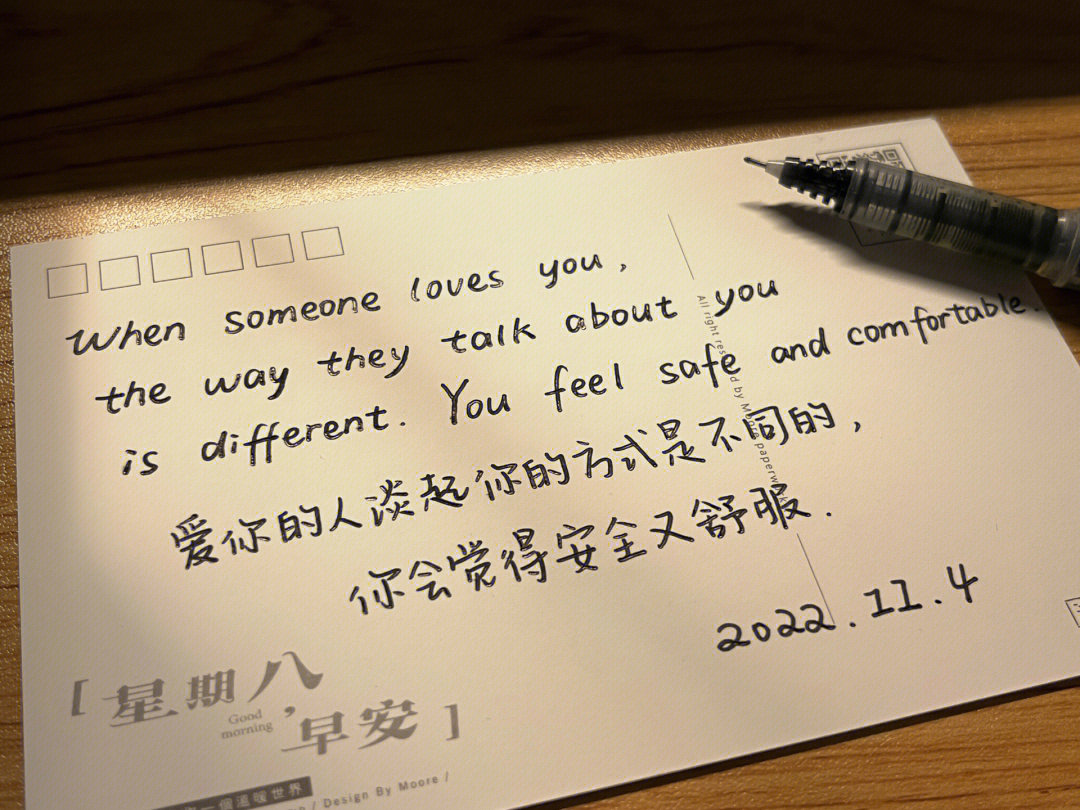 when someone loves you,
the way they talk about you
is different. You feel safe and comfortable.
爱你的人谈起你的方式是不同的,
你会觉得安全又舒服.
2022.11.4
All right res d by Moore paperw
[星期八,早安]
Good
morning
一個溫暖世界
/ Design By Moore /